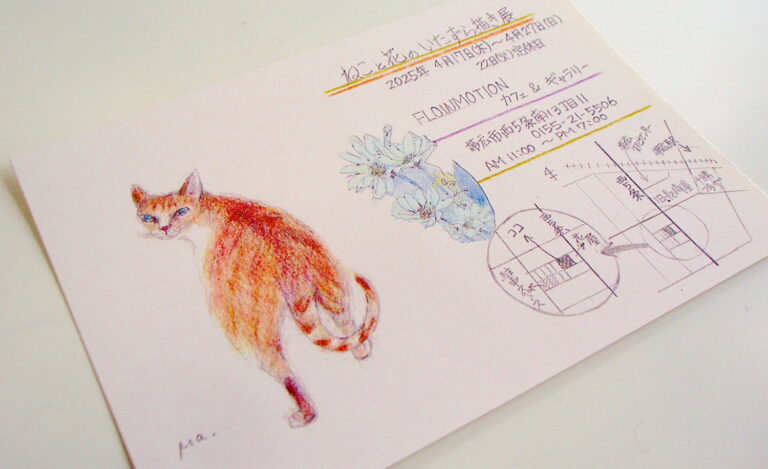 ねこと花のいたずら描き展
2025年 4月17日(木)～4月27日(日)
22日(火)定休日
FLOWMOTION
カフェ & ギャラリー
帯広市西5条南13丁目11
0155-21-5506
AM 11:00 ～ PM 7:00
西5条
ココ
駐車スペース
Ma.